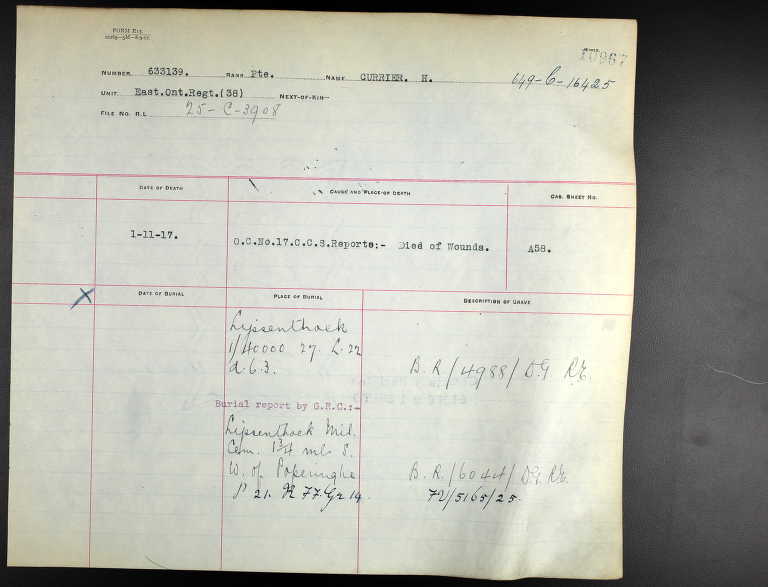 FORM E15
10967
NUMBER 633139. RANK Pte. NAME CURRIER. H. 649-C-16425
UNIT East.Ont.Regt.(38) NEXT-OF-KIN
FILE NO. R.L. 25-C-3908
DATE OF DEATH CAUSE AND PLACE OF DEATH CAS. SHEET NO.
1-11-17. O.C.No.17.C.C.S.Reports:- Died of Wounds. A58.
X DATE OF BURIAL PLACE OF BURIAL DESCRIPTION OF GRAVE
Lijssenthoek
1/40000 27. L. 22
d. 6.3. B.R/4988/D.G R.E.
Burial report by G.R.C.:-
Lijssenthoek Mil.
Cem. 1¾ mls S.
W. of Poperinghe B.R./6044/D.G. R.E.
P 21. R FF. Gr 14. 7V/5165/25.